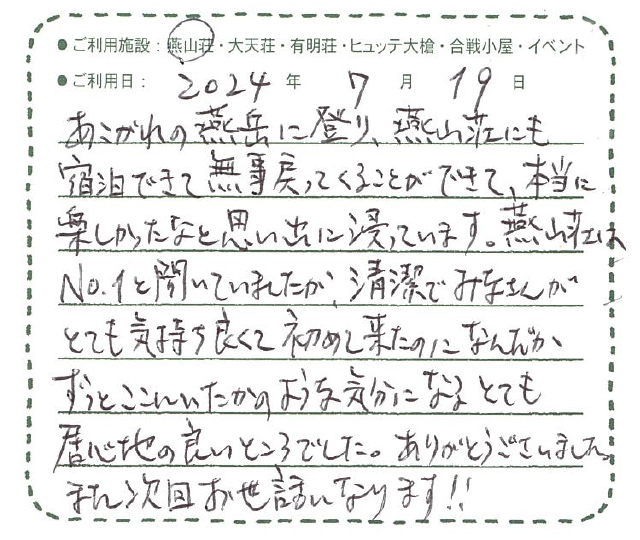 ●ご利用施設：燕山荘・大天荘・有明荘・ヒュッテ大槍・合戦小屋・イベント
●ご利用日： 2024 年 7 月 19 日
あこがれの燕岳に登り、燕山荘にも
宿泊できて無事戻ってくることができて、本当に
楽しかったなと思い出に浸っています。燕山荘は
No.1と聞いていましたが、清潔でみなさんが
とても気持ち良くて初めて来たのになんだか
ずっとここにいたかのような気分になるとても
居心地の良いところでした。ありがとうございました。
また次回お世話になります!!